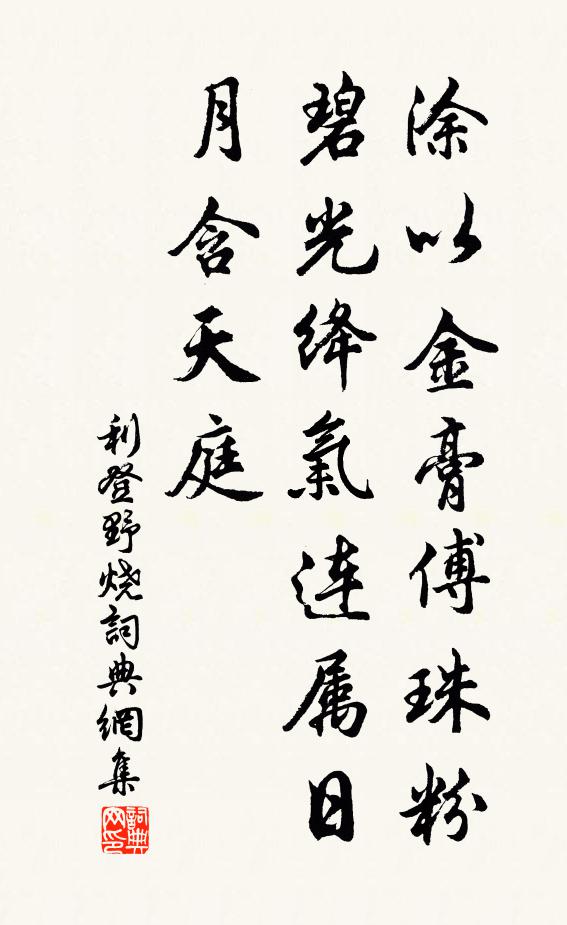 涂以金膏傅珠粉
碧光绛氣连属日
月含天庭
利登野烧詞典網集
詞典网印